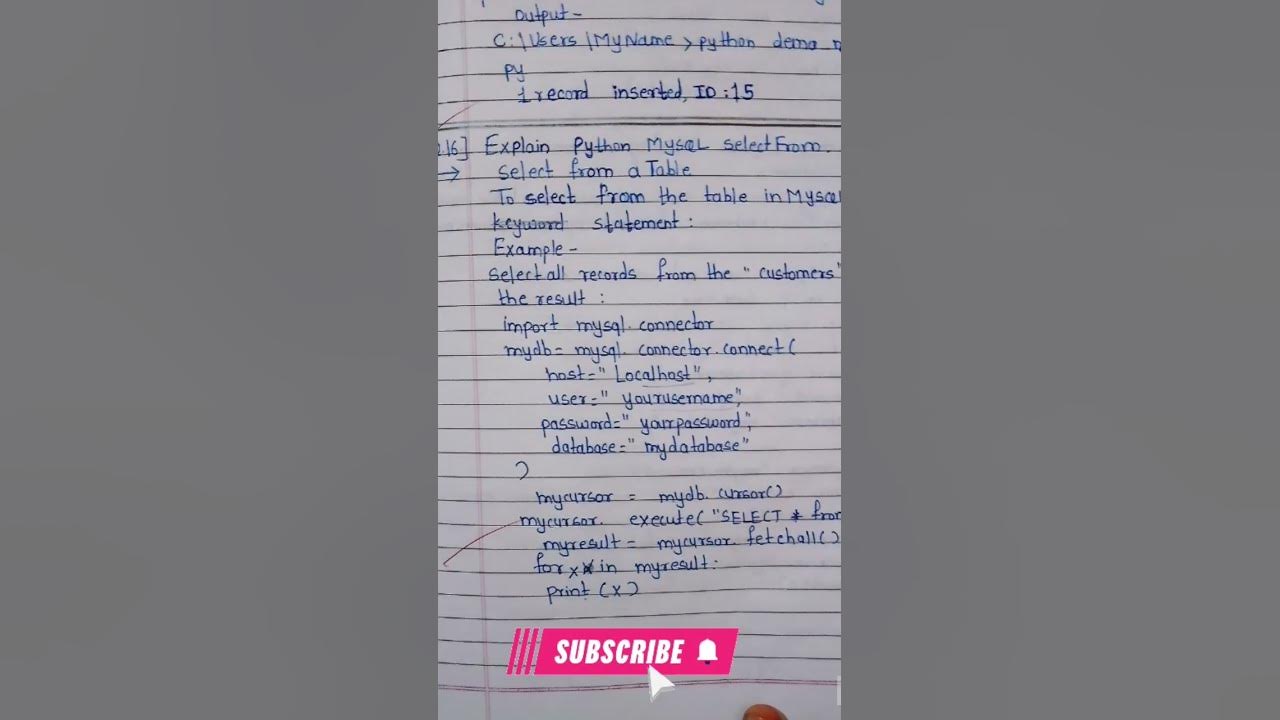 output-
C:\Users\MyName>python demo
py
1 record inserted, ID:15
16] Explain Python MySQL select From.
→ select from a Table
To select from the table in Mysql
keyword statement:
Example-
select all records from the "customers"
the result:
import mysql.connector
mydb= mysql.connector.connect(
host="Localhost",
user="yourusername",
password="yourpassword",
database="mydatabase"
)
mycursor = mydb.cursor()
mycursor. execute("SELECT * from
myresult = mycursor.fetchall()
for x in myresult:
print (x)
SUBSCRIBE